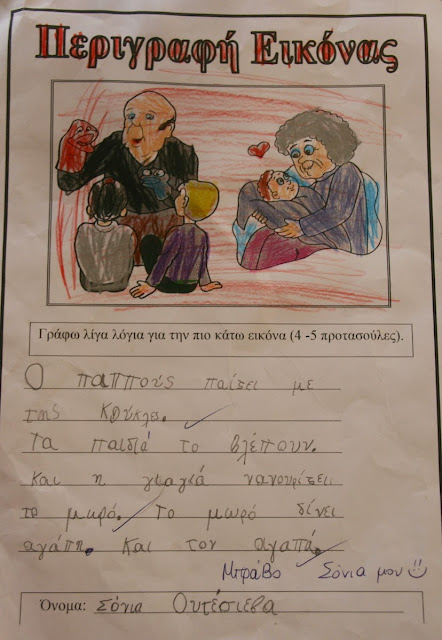 Περιγραφή Εικόνας
Γράφω λίγα λόγια για την πιο κάτω εικόνα (4 -5 προτασούλες).
Ο παππούς παίζει με
της κούκλες.
Τα παιδιά το βλέπουν.
και η γιαγιά νανουρίζει
το μωρό. Το μωρό δίνει
αγάπη. και τον αγαπά.
Μπράβο Σόνια μου
Όνομα: Σόνια Ουτέσιεβα